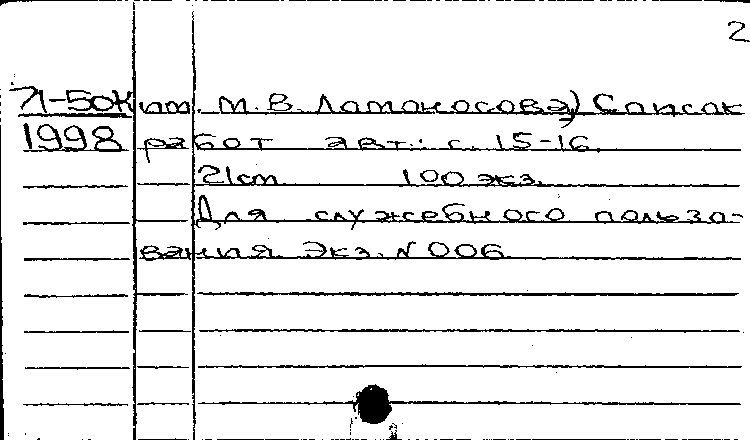 2
71-50к им. М.В. Ломоносова) Список
1998 работ авт.: с. 15-16.
21см 100 экз.
Для служебного пользо-
вания. Экз. N 006